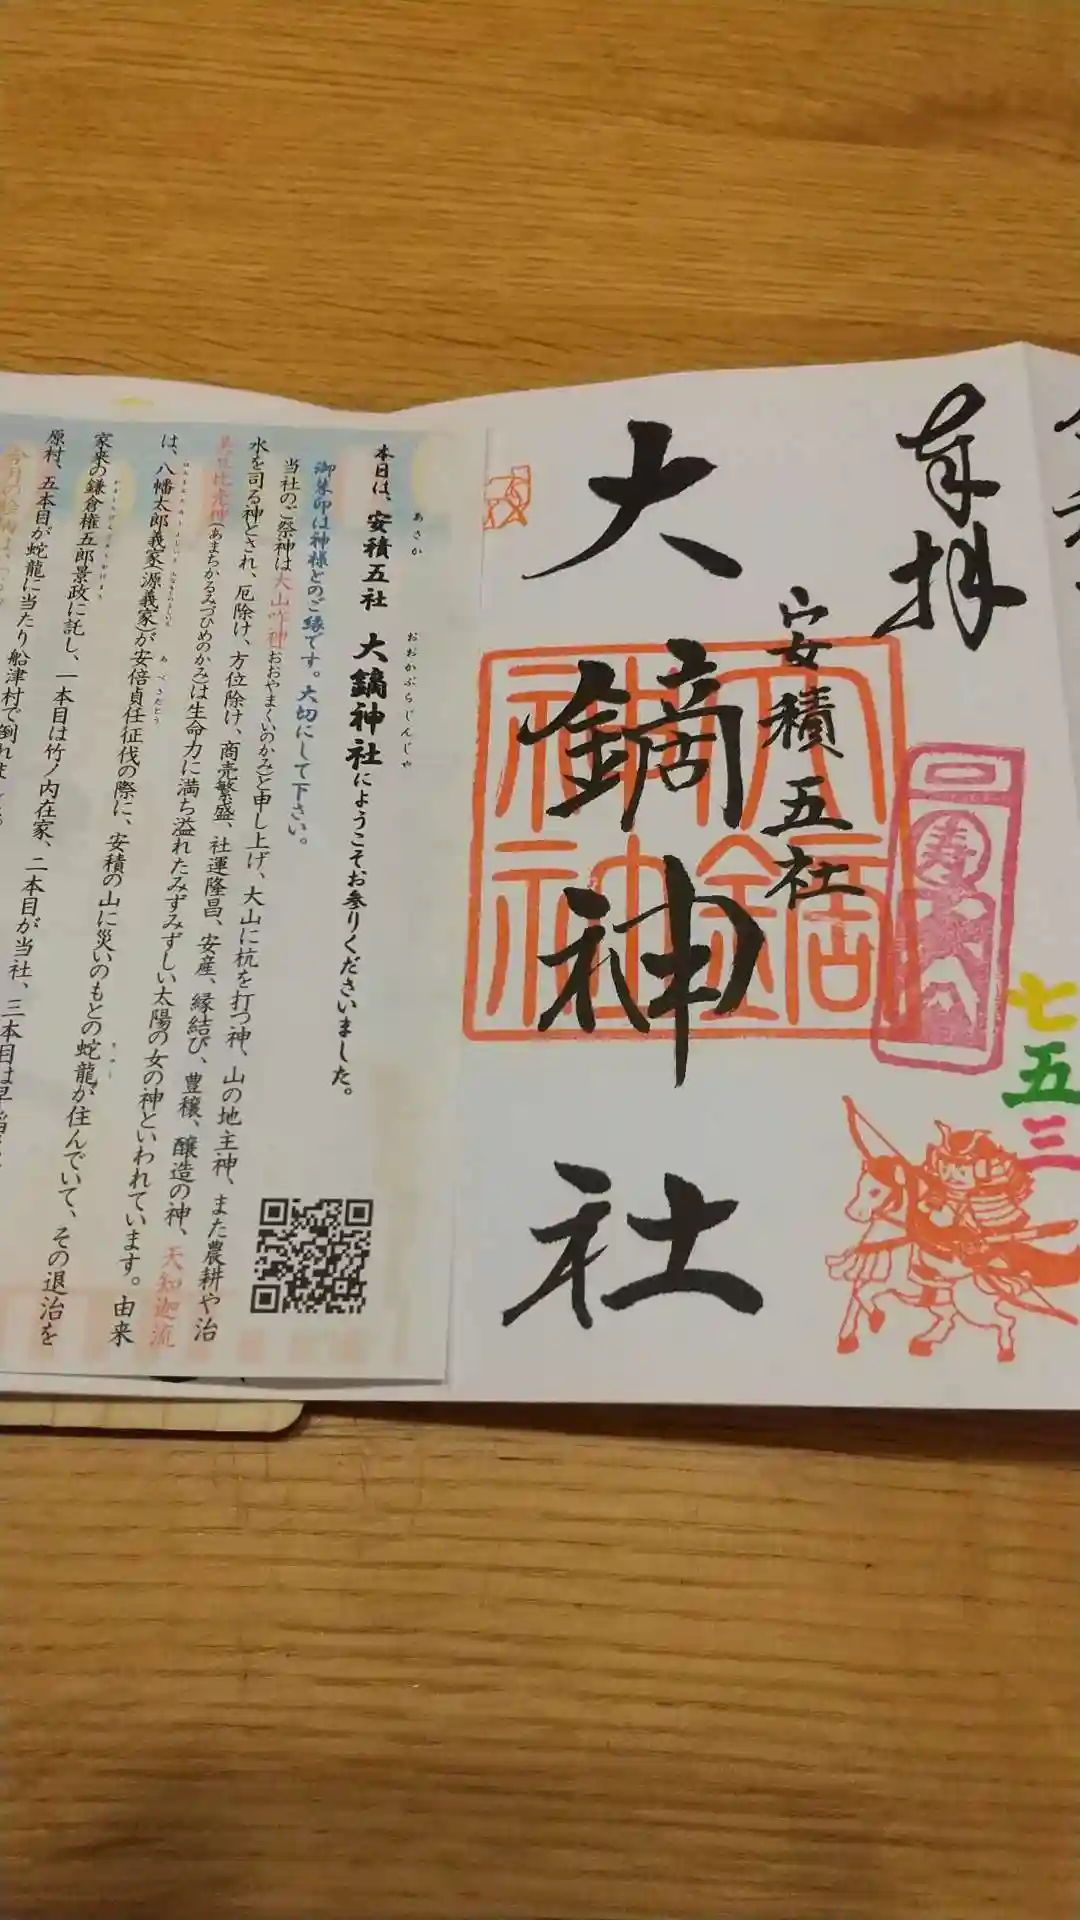 奉拝
七五三
安積五社
大鏑神社
大鏑神社
あさか
おおかぶらじんじゃ
本日は、安積五社 大鏑神社にようこそお参りくださいました。
御朱印は神様とのご縁です。大切にして下さい。
当社のご祭神は大山咋神(おおやまくいのかみ)と申し上げ、大山に杭を打つ神、山の地主神、また農耕や治
水を司る神とされ、厄除け、方位除け、商売繁盛、社運隆昌、安産、縁結び、豊穣、醸造の神、天知迦流
美豆比売神(あまちかるみづひめのかみ)は生命力に満ち溢れたみずみずしい太陽の女の神といわれています。由来
は、八幡太郎義家(源義家)が安倍貞任征伐の際に、安積の山に災いのもとの蛇龍が住んでいて、その退治を
家来の鎌倉権五郎景政に託し、一本目は竹ノ内在家、二本目が当社、三本目は早稲
原村、五本目が蛇龍に当たり船津村で倒れ
今月の